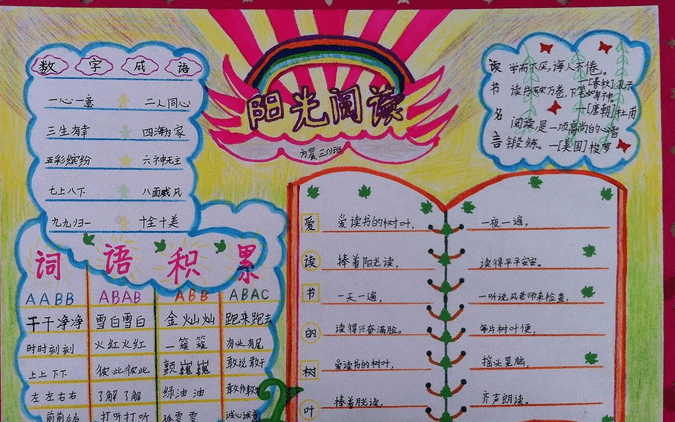 数字成语
一心一意 二人同心
三生有幸 四海为家
五彩缤纷 六神无主
七上八下 八面威风
九九归一 十全十美
阳光阅读
三(1)班
读书名言
学而不厌,诲人不倦。
—[春秋]孔子
读书破万卷,下笔如有神。
—[唐朝]杜甫
阅读是一项高尚的心智
锻练。—[美国]梭罗
词语积累
AABB ABAB ABB ABAC
干干净净 雪白雪白 金灿灿 跑来跑去
时时刻刻 火红火红 一簇簇 有头有尾
上上下下 彼此彼此 颤巍巍 敢说敢干
左左右右 了解了解 绿油油
打听打听 诚心诚意
爱读书的树叶
爱读书的树叶,
捧着阳光读,
一天一遍,
读得兴奋满脸。
爱读书的树叶,
捧着脸读,
一夜一遍,
读得平平安安。
一听说风老师来检查,
每片树叶便,
摇头晃脑,
齐声朗读。